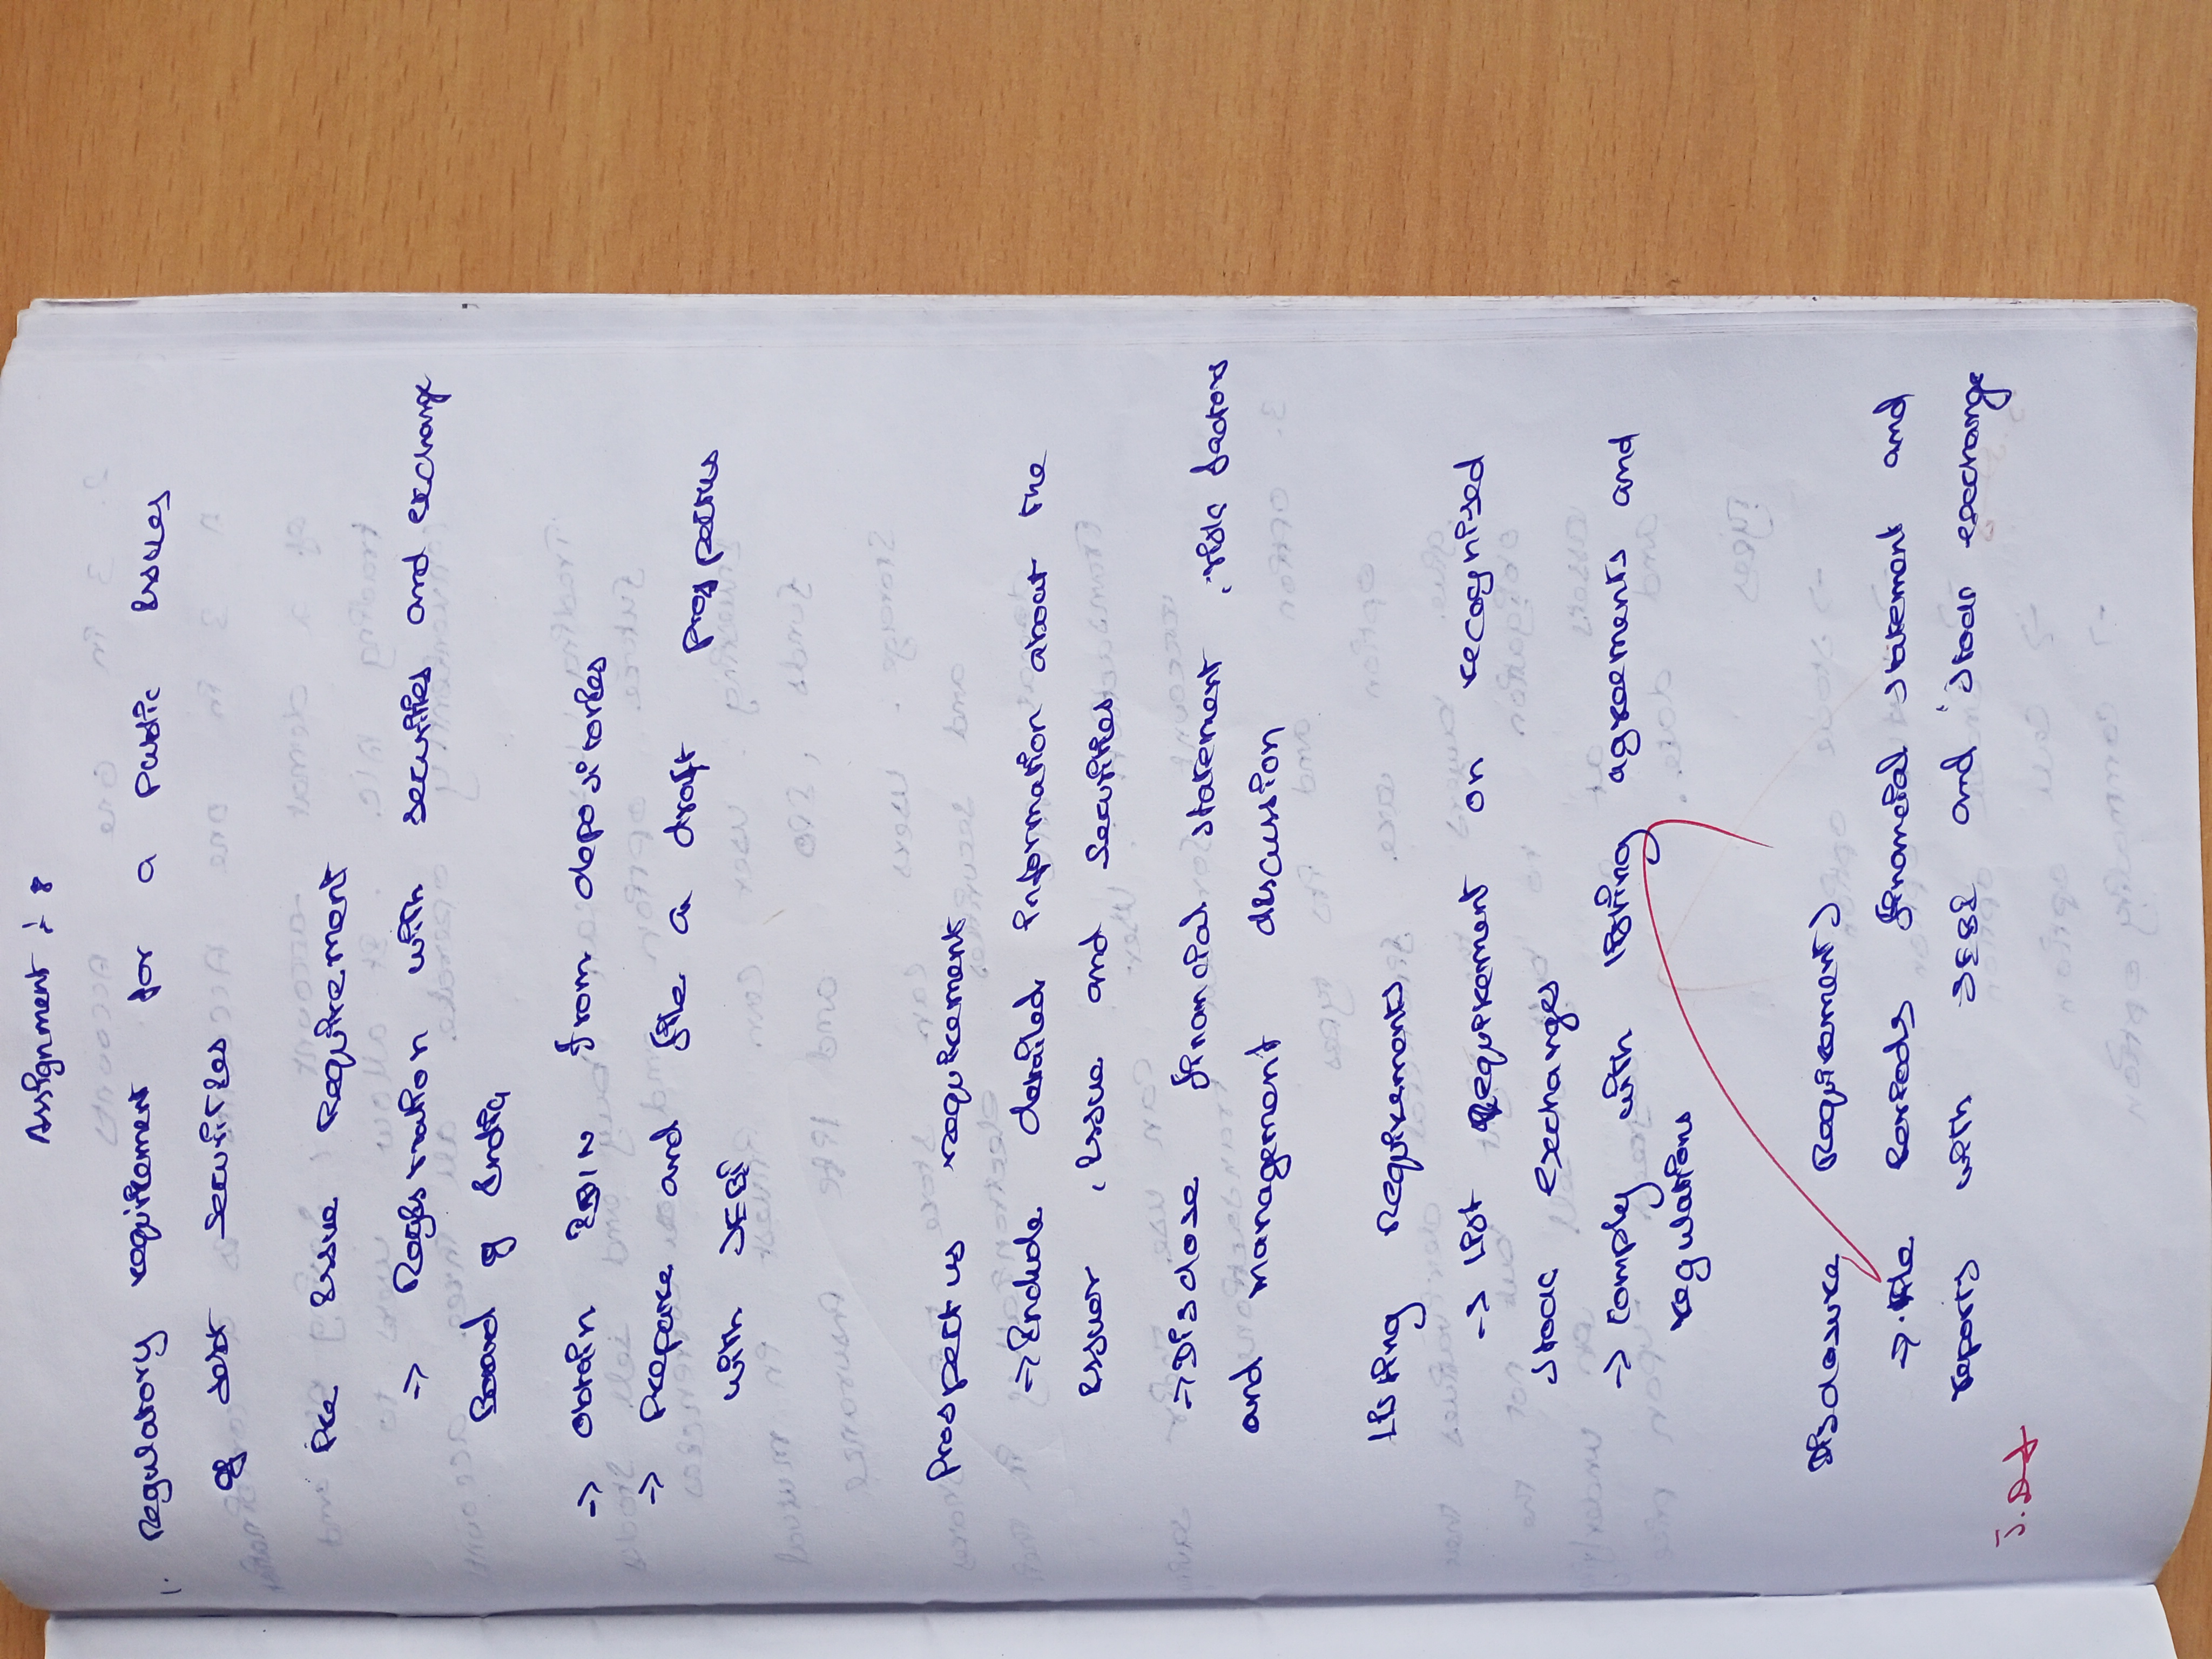 Assignment : 8
1. Regulatory requirement for a public issues
of debt securities
Pre issue Requirement
→ Registration with securities and exchange
Board of India
→ obtain ISIN from depositories
→ Prepare and file a draft prospectus
with SEBI
Prospectus requirement
→ Include detailed information about the
issuor, issue and securities
→ Disclose financial statement, risk factors
and management discussion
Listing Requirements
→ list Requirement on recognised
stock exchanges
→ comply with listing agreements and
regulations
Disclosure Requirements
→ file periods financial statement and
reports with SEBI and stock exchange